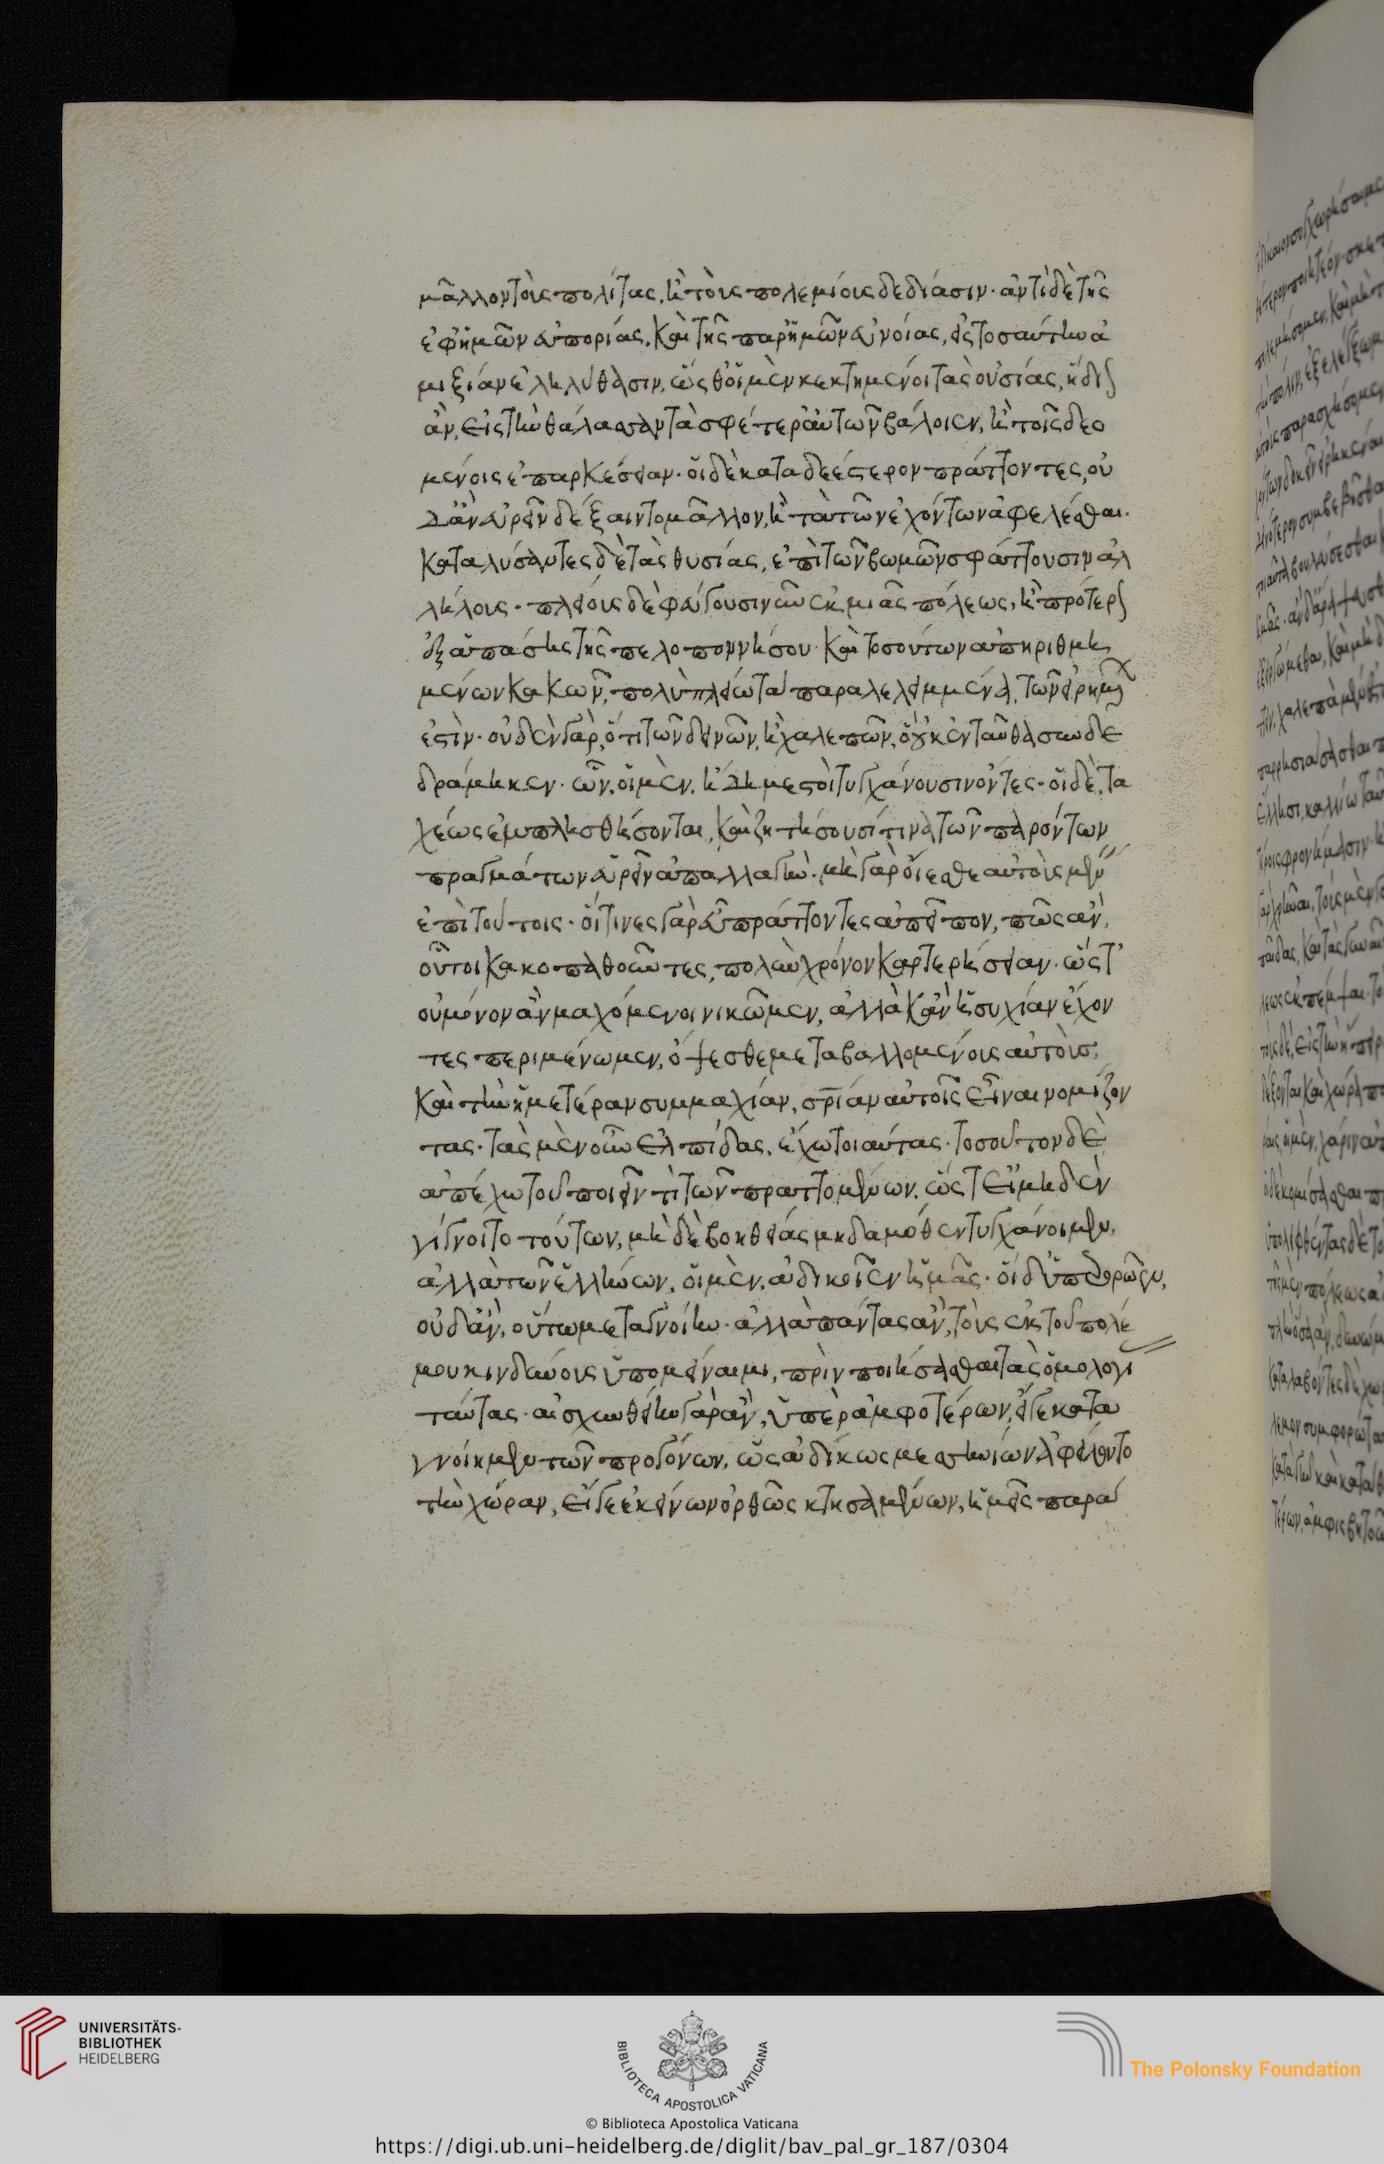 μᾶλλον τοὺς πολίτας, ἢ τοὺς πολεμίους δεδίασιν· ἀντὶ δὲ τῆς
ἐφ' ἡμῶν εὐπορίας, καὶ τῆς παρ' ἡμῶν εὐνοίας, εἰς τοσαύτην ἀ
μιξίαν ἐληλύθασιν, ὥσθ' οἱ μὲν κεκτημένοι τὰς οὐσίας, ἥδιον
ἂν, εἰς τὴν θάλασσαν τὰ σφέτερ' αὐτῶν βάλοιεν, ἢ τοῖς δεο
μένοις ἐπαρκέσειαν· οἱ δὲ καταδεέστερον πράττοντες, οὐ
δ' ἂν εὑρεῖν δέξαιντο μᾶλλον, ἢ τὰ τῶν ἐχόντων ἀφελέσθαι·
καταλύσαντες δὲ τὰς θυσίας, ἐπὶ τῶν βωμῶν σφάττουσιν ἀλ
λήλους· πλείους δὲ φεύγουσι νῦν ἐκ μιᾶς πόλεως, ἢ πρότερον
ἐξ ἁπάσης τῆς πελοποννήσου· καὶ τοσούτων ἀπηριθμη
μένων κακῶν, πολὺ πλείω τὰ παραλελειμμένα, τῶν εἰρημένων
ἐστὶν· οὐδὲν γὰρ, ὅτι τῶν δεινῶν, ἢ χαλεπῶν, οὐκ ἐνταῦθα συνδε
δράμηκεν· ὧν, οἱ μὲν, ἤδη μεστοὶ τυγχάνουσιν ὄντες· οἱ δὲ, τα
χέως ἐμπλησθήσονται, καὶ ζητήσουσί τινα τῶν παρόντων
πραγμάτων εὑρεῖν ἀπαλλαγήν· μὴ γὰρ οἴεσθε αὐτοὺς μένειν
ἐπὶ τούτοις· οἵτινες γὰρ εὖ πράττοντες ἀπεῖπον, πῶς ἂν,
οὗτοι κακοπαθοῦντες, πολὺν χρόνον καρτερήσειαν· ὥστ'
οὐ μόνον ἂν μαχόμενοι νικῶμεν, ἀλλὰ κἂν ἡσυχίαν ἔχον
τες περιμένωμεν, ὄψεσθε μεταβαλλομένους αὐτοὺς,
καὶ τὴν ἡμετέραν συμμαχίαν, σωτηρίαν αὐτοῖς εἶναι νομίζον
τας· τὰς μὲν οὖν ἐλπίδας, ἔχω τοιαύτας· τοσοῦτον δὲ
ἀπέχω τοῦ ποιεῖν τι τῶν πραττομένων, ὥστ' εἰ μηδὲν
γίγνοιτο τούτων, μηδὲ βοηθείας μηδαμόθεν τυγχάνοιμεν,
ἀλλὰ τῶν ἑλλήνων, οἱ μὲν, ἀδικοῖεν ἡμᾶς· οἱ δ' ὑπερορῷεν,
οὐδ' ἂν, οὕτω μεταγνοίην· ἀλλὰ πάντας ἂν, τοὺς ἐκ τοῦ πολέ
μου κινδύνους ὑπομείναιμι, πρὶν ποιήσασθαι τὰς ὁμολογίας
ταύτας· αἰσχυνθείην γὰρ ἂν, ὑπὲρ ἀμφοτέρων, εἴτε κατα
γνοίημεν τῶν προγόνων, ὡς ἀδίκως μεσσηνίων ἀφείλοντο
τὴν χώραν, εἴτε ἐκείνων ὀρθῶς κτησαμένων, ἡμεῖς παρὰ
UNIVERSITÄTS-
BIBLIOTHEK
HEIDELBERG
BIBLIOTECA APOSTOLICA VATICANA
The Polonsky Foundation
© Biblioteca Apostolica Vaticana
https://digi.ub.uni-heidelberg.de/diglit/bav_pal_gr_187/0304